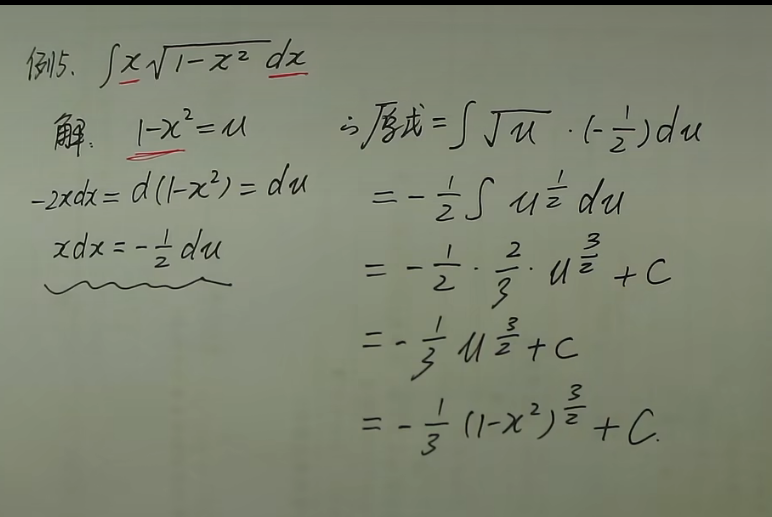 例15. ∫x√(1-x²) dx
解. 1-x²=u
-2xdx=d(1-x²)=du
xdx=-1/2 du
∴原式=∫√u·(-1/2)du
=-1/2∫u^(1/2) du
=-1/2·2/3·u^(3/2)+C
=-1/3 u^(3/2)+C
=-1/3 (1-x²)^(3/2)+C.